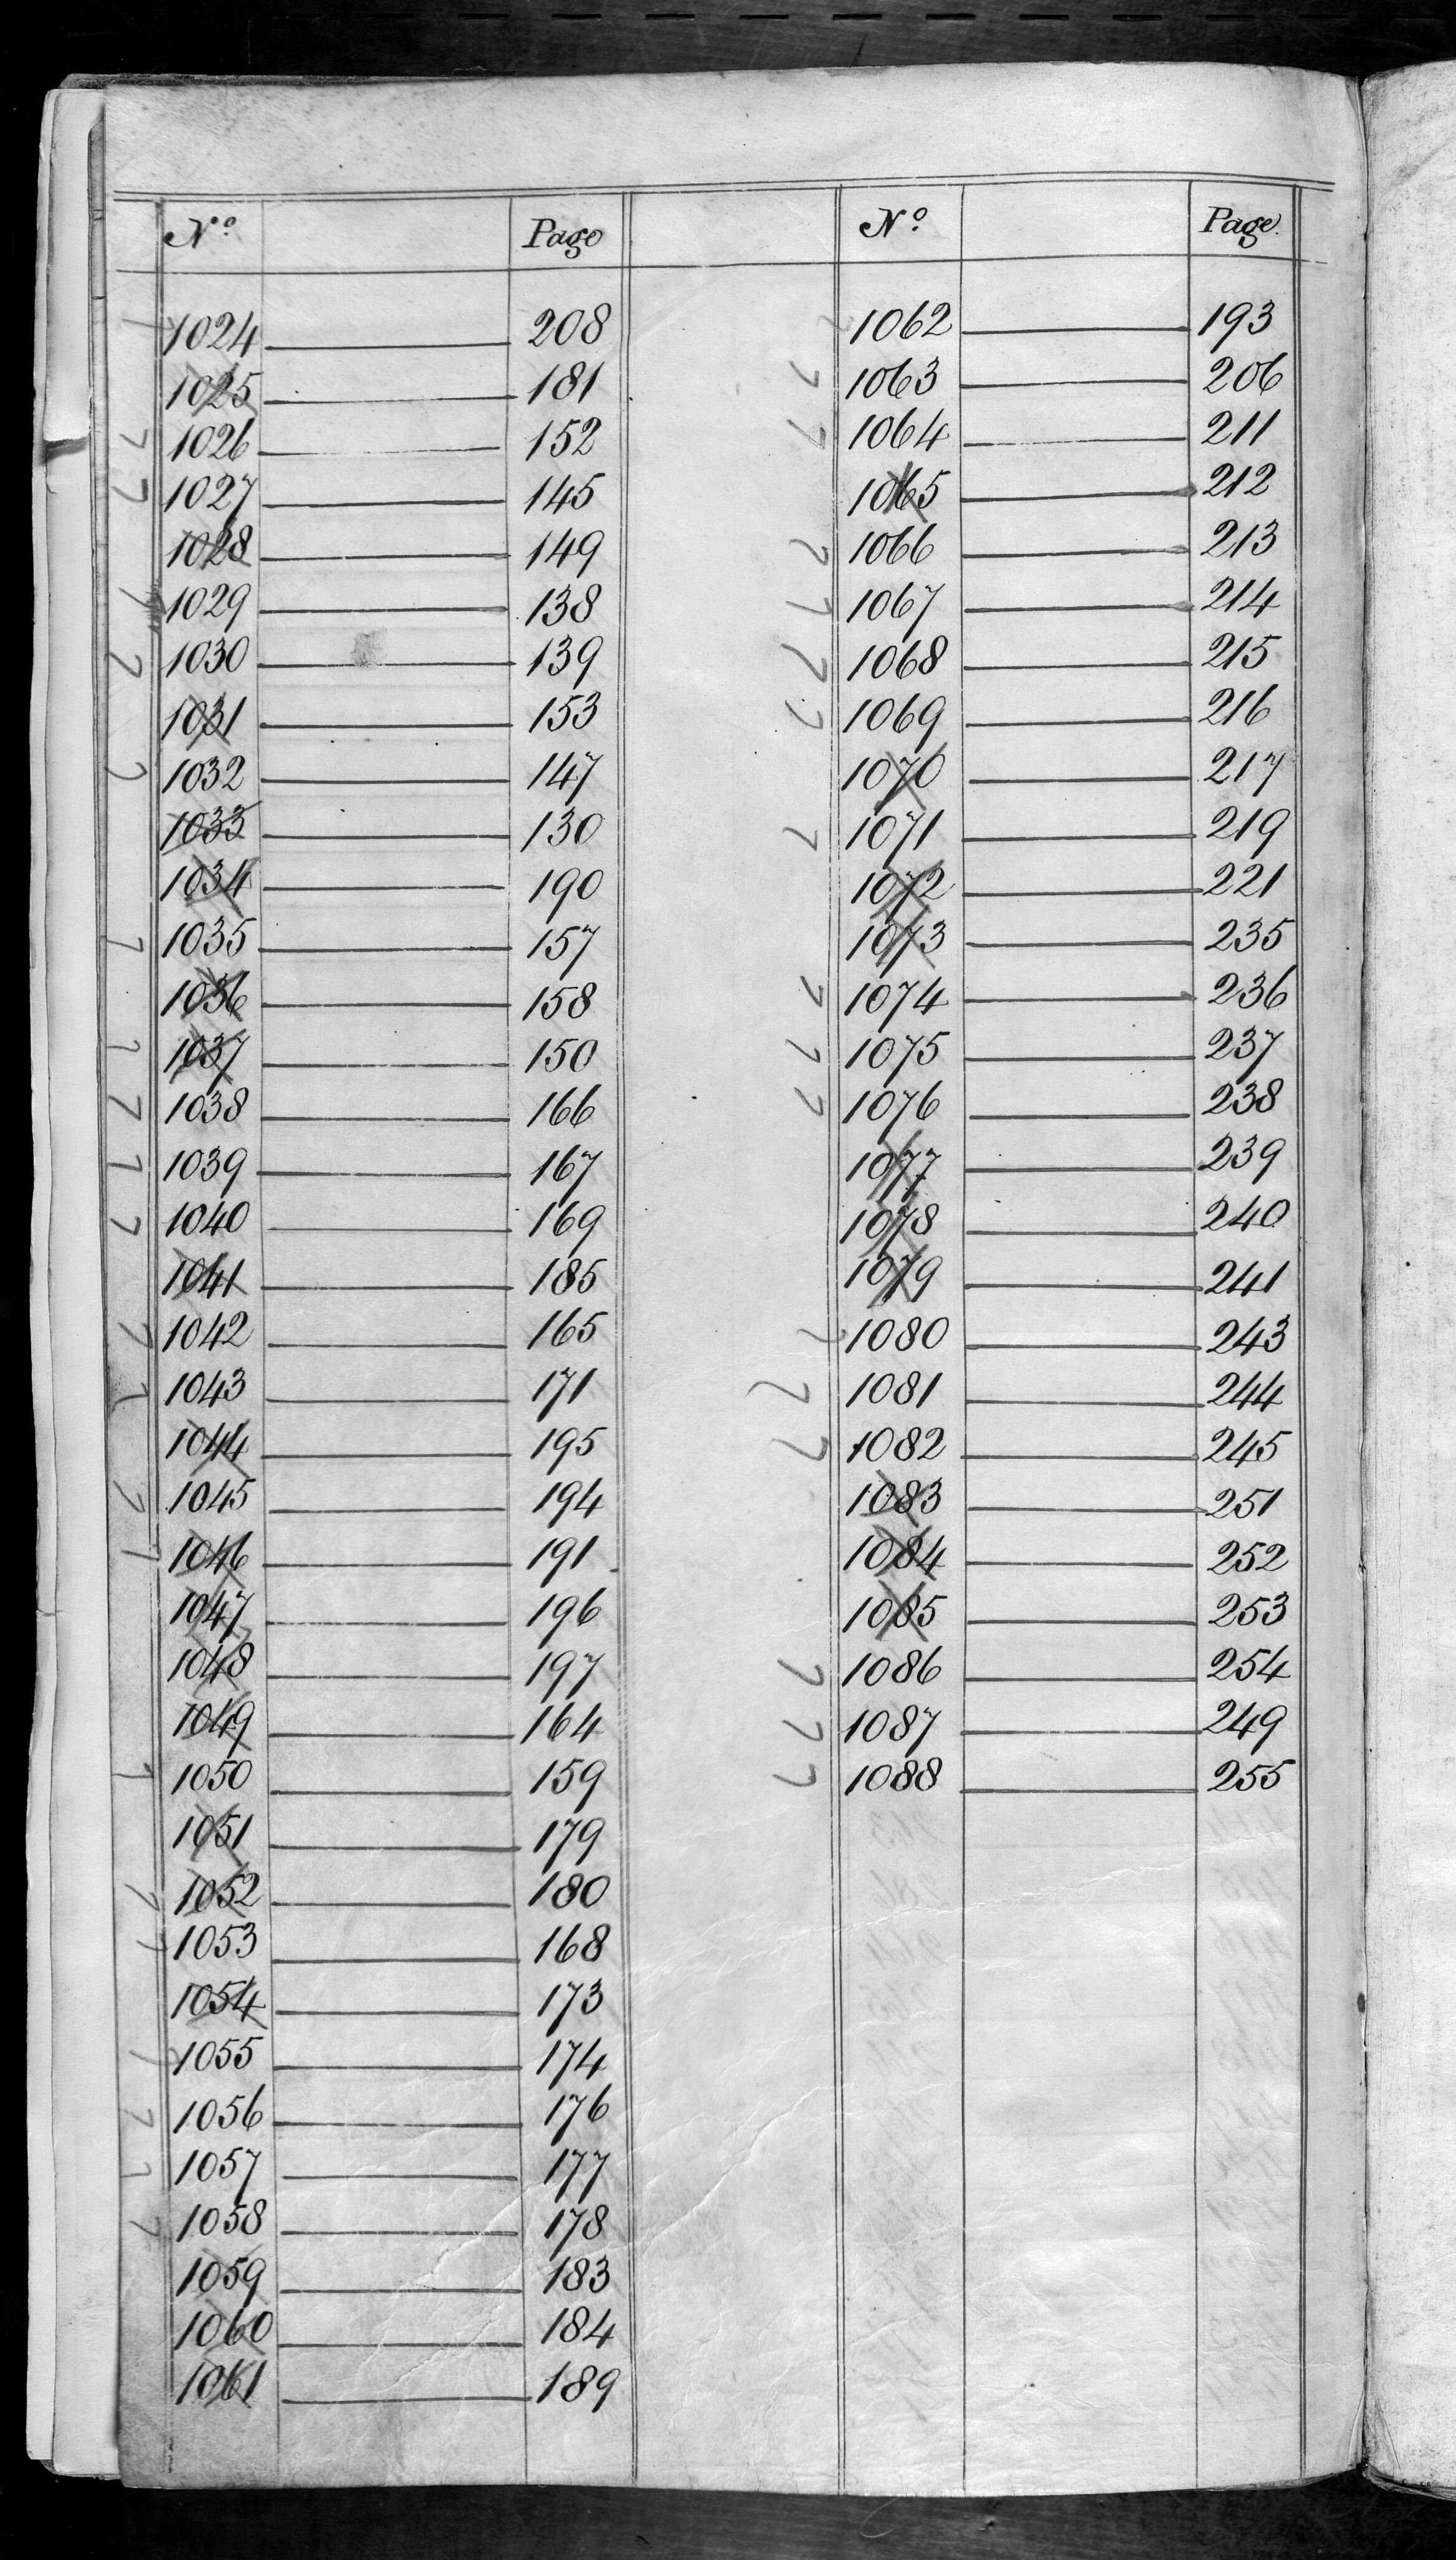 Nº Page
1024 208
1025 181
1026 152
1027 145
1028 149
1029 138
1030 139
1031 153
1032 147
1033 130
1034 190
1035 157
1036 158
1037 150
1038 166
1039 167
1040 169
1041 185
1042 165
1043 171
1044 195
1045 194
1046 191
1047 196
1048 197
1049 164
1050 159
1051 179
1052 180
1053 168
1054 173
1055 174
1056 176
1057 177
1058 178
1059 183
1060 184
1061 189
Nº Page
1062 193
1063 206
1064 211
1065 212
1066 213
1067 214
1068 215
1069 216
1070 217
1071 219
1072 221
1073 235
1074 236
1075 237
1076 238
1077 239
1078 240
1079 241
1080 243
1081 244
1082 245
1083 251
1084 252
1085 253
1086 254
1087 249
1088 255